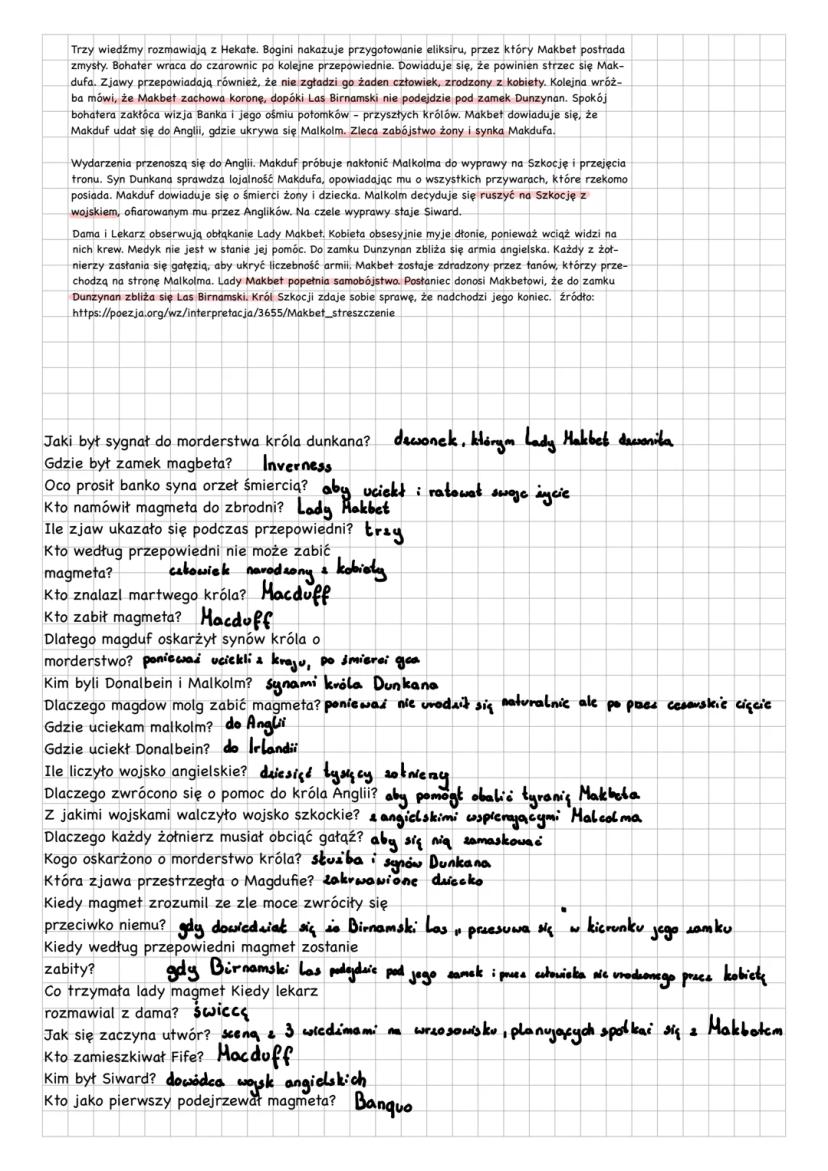 Trzy wiedźmy rozmawiają z Hekate. Bogini nakazuje przygotowanie eliksiru, przez który Makbet postrada
zmysły. Bohater wraca do czarownic po kolejne przepowiednie. Dowiaduje się, że powinien strzec się Mak-
dufa. Zjawy przepowiadają również, że nie zgładzi go żaden człowiek, zrodzony z kobiety. Kolejna wróż-
ba mówi, że Makbet zachowa koronę, dopóki Las Birnamski nie podejdzie pod zamek Dunzynan. Spokój
bohatera zakłóca wizja Banka i jego ośmiu potomków – przyszłych królów. Makbet dowiaduje się, że
Makduf udał się do Anglii, gdzie ukrywa się Malkolm. Zleca zabójstwo żony i synka Makdufa.
Wydarzenia przenoszą się do Anglii. Makduf próbuje nakłonić Malkolma do wyprawy na Szkocję i przejęcia
tronu. Syn Dunkana sprawdza lojalność Makdufa, opowiadając mu o wszystkich przywarach, które rzekomo
posiada. Makduf dowiaduje się o śmierci żony i dziecka. Malkolm decyduje się ruszyć na Szkocję z
wojskiem, ofiarowanym mu przez Anglików. Na czele wyprawy staje Siward.
Dama i Lekarz obserwują obłąkanie Lady Makbet. Kobieta obsesyjnie myje dłonie, ponieważ wciąż widzi na
nich krew. Medyk nie jest w stanie jej pomóc. Do zamku Dunzynan zbliża się armia angielska. Każdy z żoł-
nierzy zasłania się gałęzią, aby ukryć liczebność armii. Makbet zostaje zdradzony przez tanów, którzy prze-
chodzą na stronę Malkolma. Lady Makbet popełnia samobójstwo. Posłaniec donosi Makbetowi, że do zamku
Dunzynan zbliża się Las Birnamski. Król Szkocji zdaje sobie sprawę, że nadchodzi jego koniec. źródło:
https://poezja.org/wz/interpretacja/3655/Makbet_streszczenie
Jaki był sygnał do morderstwa króla dunkana? dzwonek, którym Lady Makbet dzwoniła
Gdzie był zamek magbeta? Inverness
Oco prosił banko syna orzeł śmiercią? aby uciekł i ratował swoje życie
Kto namówił magmeta do zbrodni? Lady Makbet
Ile zjaw ukazało się podczas przepowiedni? trzy
Kto według przepowiedni nie może zabić
magmeta? człowiek narodzony z kobiety
Kto znalazl martwego króla? Macduff
Kto zabił magmeta? Macduff
Dlatego magduf oskarżył synów króla o
morderstwo? ponieważ uciekli z kraju, po śmierci ojca
Kim byli Donalbein i Malkolm? synami króla Dunkana
Dlaczego magdow molg zabić magmeta? ponieważ nie urodził się naturalnie ale po przez cesarskie cięcie
Gdzie uciekam malkolm? do Anglii
Gdzie uciekł Donalbein? do Irlandii
Ile liczyło wojsko angielskie? dziesięć tysięcy żołnierzy
Dlaczego zwrócono się o pomoc do króla Anglii? aby pomógł obalić tyranię Makbeta
Z jakimi wojskami walczyło wojsko szkockie? z angielskimi wspierającymi Malcolma
Dlaczego każdy żołnierz musiał obciąć gałąź? aby się nią zamaskować
Kogo oskarżono o morderstwo króla? służba i synów Dunkana
Która zjawa przestrzegła o Magdufie? zakrwawione dziecko
Kiedy magmet zrozumil ze zle moce zwróciły się
przeciwko niemu? gdy dowiedział się że Birnamski Las „przesuwa się" w kierunku jego zamku
Kiedy według przepowiedni magmet zostanie
zabity? gdy Birnamski Las podejdzie pod jego zamek i przez człowieka nie urodzonego przez kobietę
Co trzymała lady magmet Kiedy lekarz
rozmawial z dama? świecę
Jak się zaczyna utwór? sceną z 3 wiedźmami na wrzosowisku, planujących spotkać się z Makbetem
Kto zamieszkiwał Fife? Macduff
Kim był Siward? dowódca wojsk angielskich
Kto jako pierwszy podejrzewał magmeta? Banquo